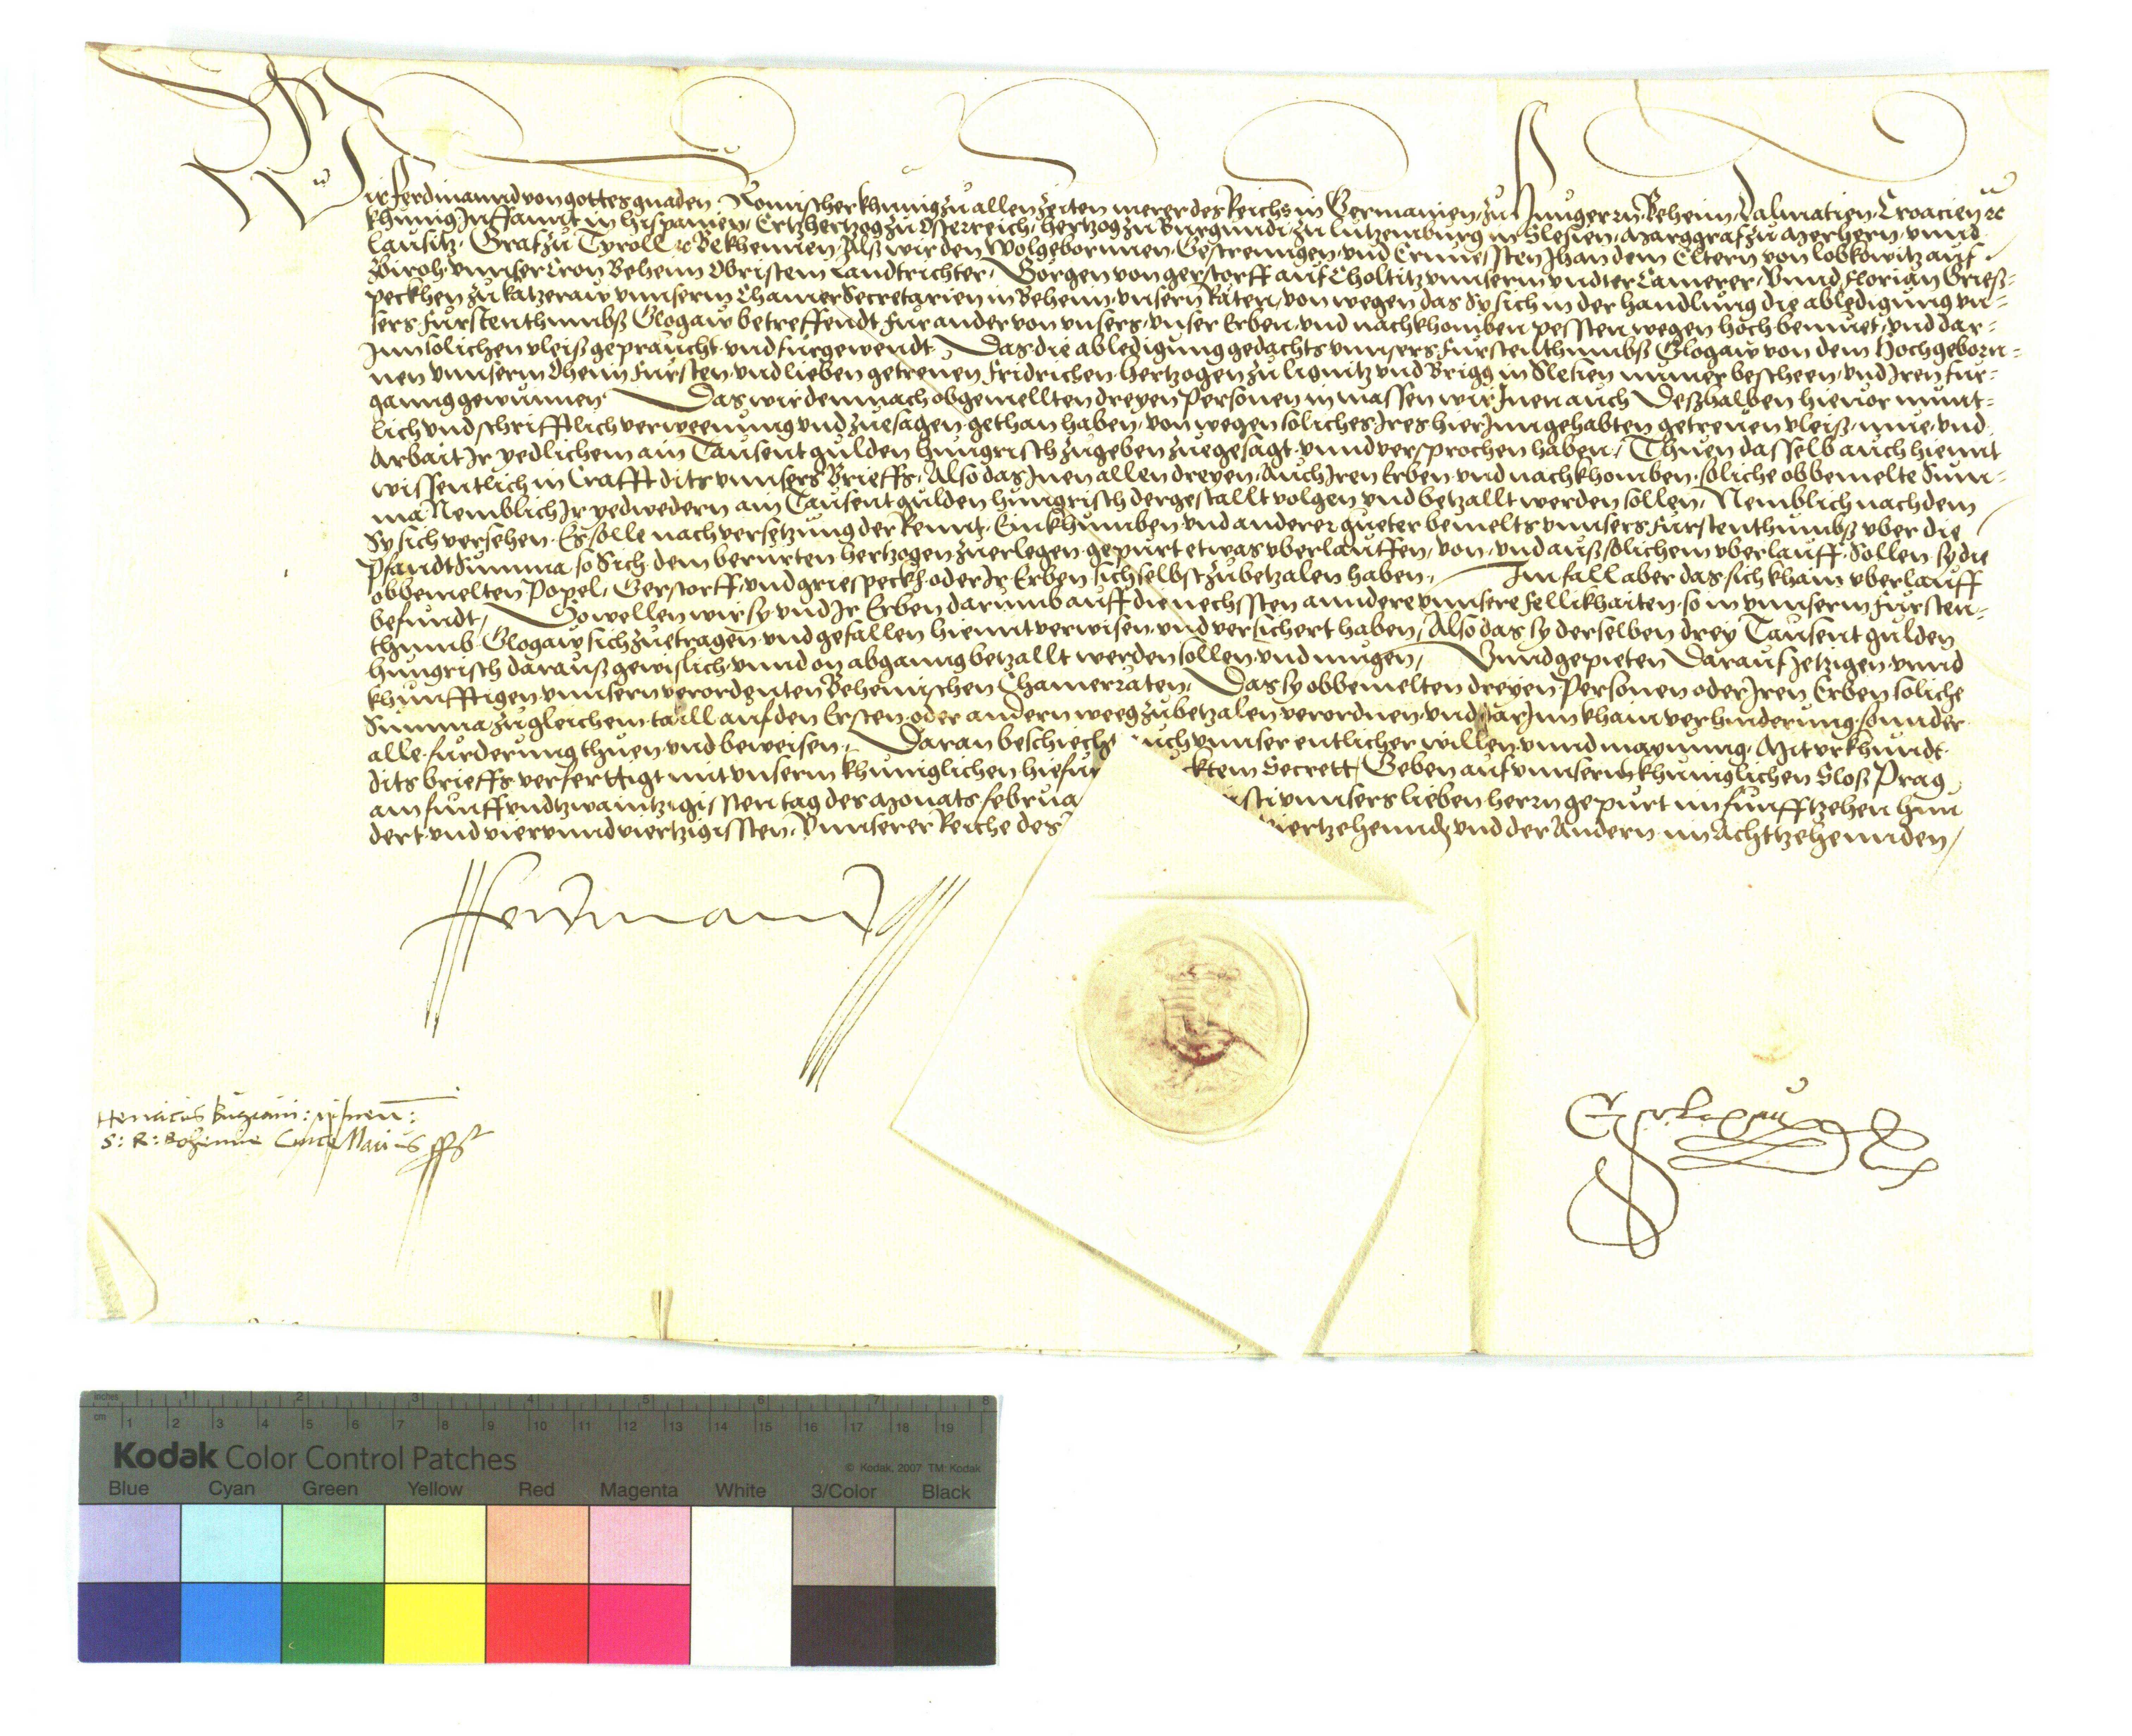 Wir Ferdinannd von gottes gnaden Romischer khunig zu allen zeiten merer des Reichs in Germanien, zu Hungern, Beheim, Dalmatien, Croacien ꝛc
khunig Inffannt in hispanien, Ertzhertzog zu Osterreich, hertzog zu Burgundi, zu lutzemburg in Slesien, Marggraf zu Merhern, vnnd
lausitz, Graf zu Tyroll ꝛc Bekhennen, Als wir den Wolgebornnen, Gestrenngen, vnd Ernnessten Jhan dem Eltern von lobkowitz auf
Zbiroh, vnnser Cron Beheim Obristem Landtrichter, Görgen von gerstorff auf Choltitz vnnserm vndter Camerer, Vnnd florian Grieß-
peckhen zu katzeraw vnnserm ChamerSecretarien in Beheim, vnsern Räten, von wegen das Sy sich in der handlung die abledigung vn-
sers fürstenthumbß Glogaw betreffendt für ander von vnsers, vnser Erben, vnd nachkhomben pessten wegen hoch bemüet, vnd dar-
Inn solichen vleiß gepraucht, vnd fürgewendt, Das die abledigung gedachts vnnsers fürstenthumbß Glogaw von dem Hochgeborn-
nen vnnserm Oheim fürsten, vnd lieben getreuen Fridrichen hertzogen zu lignitz vnd Brigg in Slesien numer bescheen, vnd Iren für-
ganng gewunnen Das wir demnach obgemellten dreyen Personen in massen wir Inen auch Deßhalben hieuor munt-
lich vnd schrifftlich verweenung vnd zuesagen gethan haben, von wegen soliches Ires hierInn gehabten getreuen vleiß, müe, vnd
Arbait Ir yedlichem ain Tausent gulden hungrisch zu geben zuegesagt vnnd versprochen haben, Thuen dasselb auch hiemit
wissentlich in Crafft dits vnnsers Brieffs, Also das Inen allen dreyen, Auch Iren Erben, vnd nachkhomben, soliche obbemelte Sum-
ma Nemblich Ir yedwedern ain Tausent gulden hungrisch dergestallt volgen vnd betzallt werden sollen, Nemblich nachdem
Sy sich versehen, Es solle nach versetzung der Rennt, Einkhumben vnd anderer güeter bemelts vnnsers fürstenthumbß vber die
Pfandt Summa so Sich dem berürten hertzogen zuerlegen gepürt etwas vberlauffen, von, vnd auß solichem vberlauff, Sollen sy die
obbemelten Popel, Gerstorff, vnd griespeckh oder Ir Erben sich selbst zu betzalen haben, Im fall aber das sich khain vberlauff
befundt, So wellen wir sy vnd Ir Erben darumb auff die nechssten anndere vnnsere fellikhaiten, so in vnnserm fürsten-
thumb Glogaw sich zuetragen vnd gefallen hiemit verwisen, vnd versichert haben, Also das sy derselben drey Tausent gulden
hungrisch darauß gewislich, vnnd on abganng betzallt werden sollen vnd mugen, Vnnd gepieten Darauf Jetzigen, vnnd
khunfftigen vnnsern verordenten Behemischen Chamerräten, Das sy obbemelten dreyen Personen oder Iren Erben soliche
Summa zu gleichem taill auf den Ersten oder andern weeg zu betzalen verordnen, vnd darInn khain verhinderung, sonnder
alle fürderung thuen vnd beweisen, Daran beschiecht uch vnnser entlicher willen, vnnd maynung, Mit vrkhundt
dits brieffs verferttigt mit vnserm khuniglichen hiefür ktem Secrett, Geben auf vnnserm khuniglichen Sloß Prag
am funffvndtzwaintzigissten tag des Monats februa isti vnnsers lieben herrn gepurt im funfftzehen hun
dert, vnd viervnndviertzigissten, Vnnserer Reiche des viertzehennd, vnd der Andern im Achttzehennden,
Ferdinannd
Henricus
S: R: Bohemie Cancellarius
Kodak Color Control Patches
© Kodak, 2007 TM: Kodak
inches 1 2 3 4 5 6 7 8
cm 1 2 3 4 5 6 7 8 9 10 11 12 13 14 15 16 17 18 19
Blue Cyan Green Yellow Red Magenta White 3/Color Black